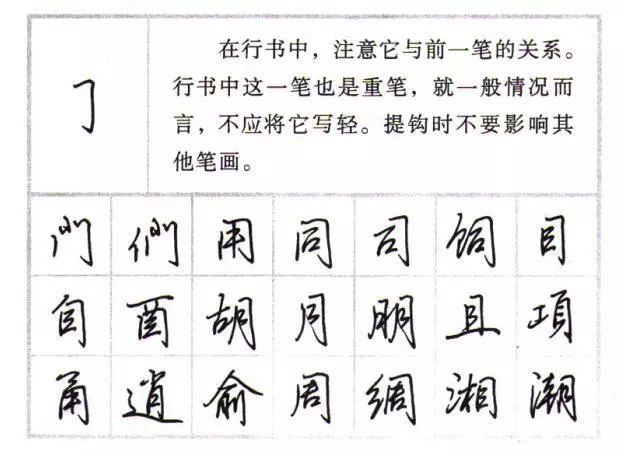 ㇆
在行书中，注意它与前一笔的关系。
行书中这一笔也是重笔，就一般情况而
言，不应将它写轻。提钩时不要影响其
他笔画。
門 們 用 同 司 饲 目
自 酉 胡 月 朋 且 項
甬 逍 俞 周 绸 湘 潮